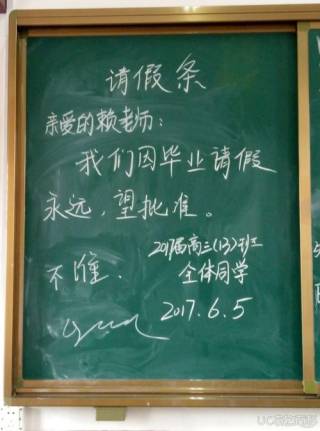 请假条
亲爱的赖老师：
我们因毕业请假
永远，望批准。
2017届高三(13)班
全体同学
2017.6.5
不准.